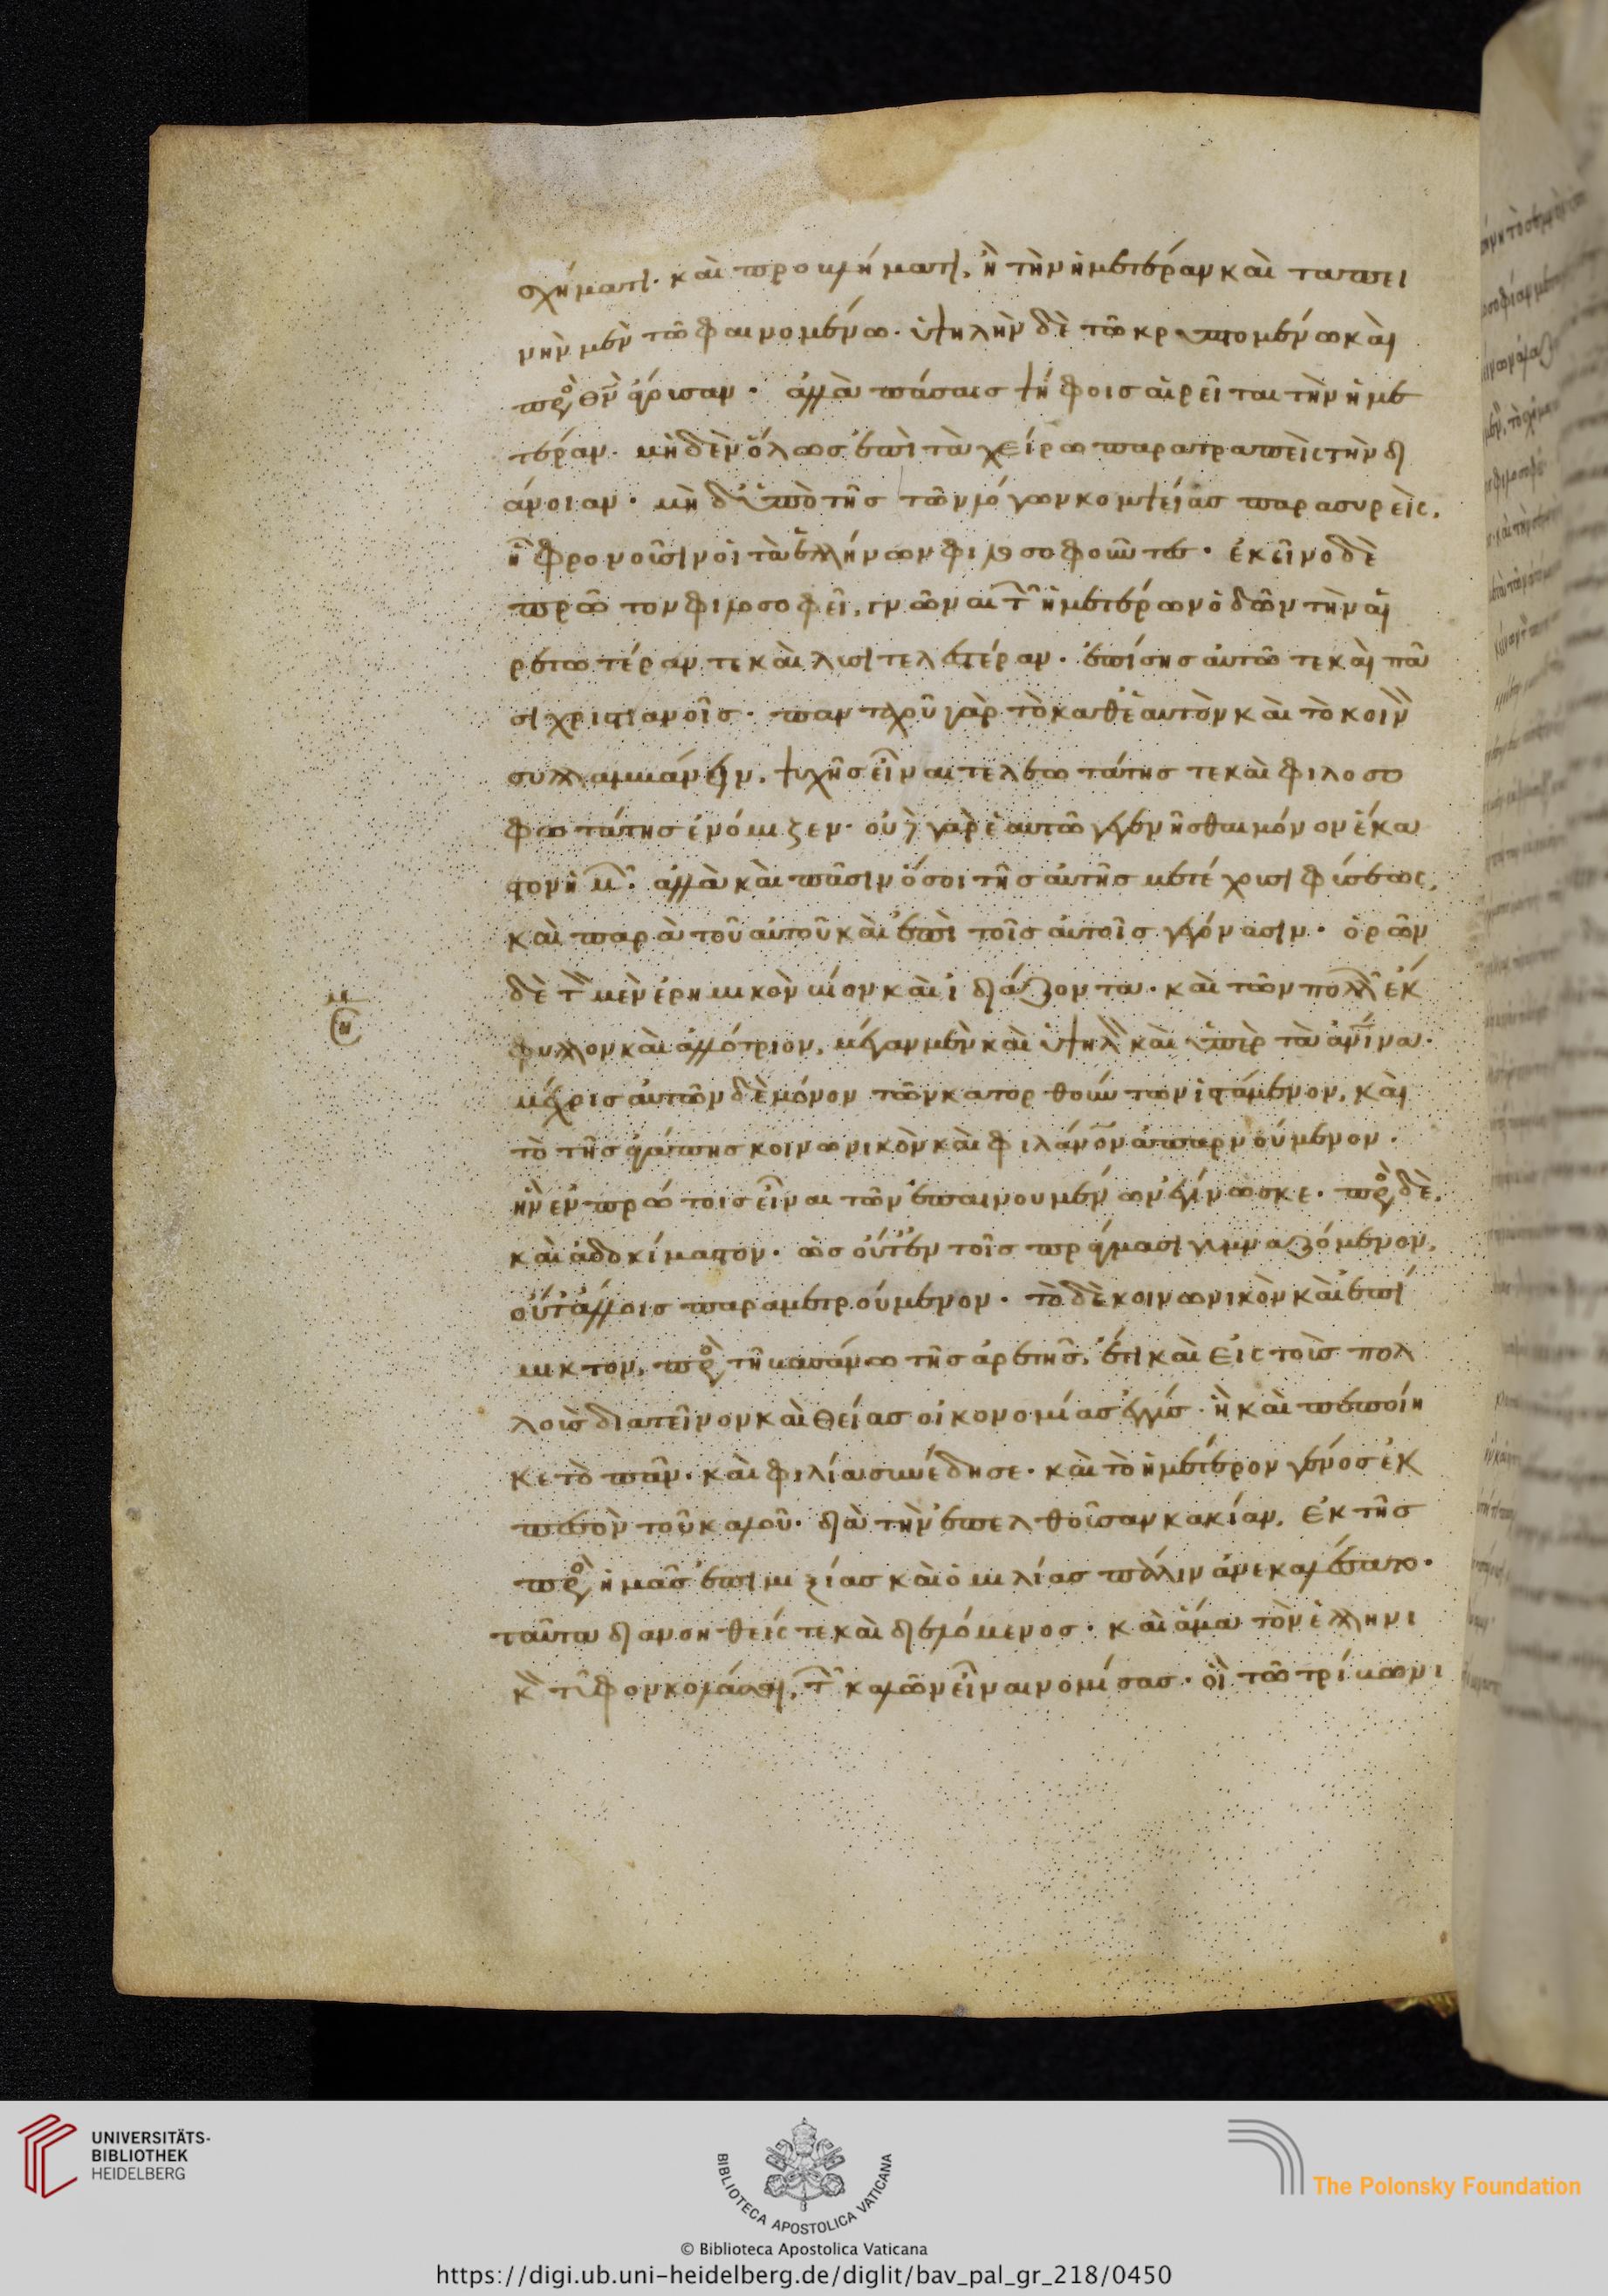 σχήματι· καὶ προβλήματι, ἢ τὴν ἡμετέραν καὶ ταπει
νὴν μὲν τῶ φαινομένω· ὑψηλὴν δὲ τῶ κρυπτομένω καὶ
πρὸς θν̅ φέρουσαν· ἀλλὰ πάσαις ψήφοις αἱρεῖται τὴν ἡμε
τέραν· μηδὲν ὅλως ἐπὶ τὰ χείρω παρατραπεὶς τὴν δι
άνοιαν· μηδ' ὑπὸ τῆς τῶν λόγων κομψείας παρασυρεὶς,
ἧ φρονοῦσιν οἱ τὰ ἑλλήνων φιλοσοφοῦντες· ἐκεῖνο δὲ
πρῶτον φιλοσοφεῖ, γνῶναι τῶν ἡμετέρων ὁδῶν τὴν αἱ
ρετωτέραν τε καὶ λυσιτελεστέραν· ἐπίσης αὐτῶ τε καὶ πᾶ
σι χριστιανοῖς· πανταχοῦ γὰρ τὸ καθ' ἑαυτὸν καὶ τὸ κοινὸν
συλλαμβάνειν, ψυχῆς εἶναι τελεωτάτης τε καὶ φιλοσο
φωτάτης ἐνόμιζεν· οὐ γὰρ ἑαυτῶ γεγενῆσθαι μόνον ἕκα
στον ἡμῶν· ἀλλὰ καὶ πᾶσιν ὅσοι τῆς αὐτῆς μετέχουσι φύσεως,
καὶ παρὰ τοῦ αὐτοῦ καὶ ἐπὶ τοῖς αὐτοῖς γεγόνασιν· ὁρῶν
δὲ τὸν μὲν ἐρημικὸν βίον καὶ ἰδιάζοντα· καὶ τῶν πολλῶν ἔκ
φυλον καὶ ἀλλότριον, μέγαν μὲν καὶ ὑψηλὸν καὶ ὑπὲρ τὰ ἀνι̅να·
μέχρις αὐτῶν δὲ μόνον τῶν κατορθούντων ἱστάμενον, καὶ
τὸ τῆς ἀγάπης κοινωνικὸν καὶ φιλάνο̅ν ἀπαρνούμενον·
ἣν ἐν πρώτοις εἶναι τῶν ἐπαινουμένων ἐγίνωσκε· πρὸς δὲ,
καὶ ἀδοκίμαστον· ὡς οὔτ' ἐν τοῖς πράγμασι γυμναζόμενον,
οὔτ' ἄλλοις παραμετρούμενον· τὸ δὲ κοινωνικὸν καὶ ἐπί
μικτον, πρὸς τῆ βασάνω τῆς ἀρετῆς, ἔτι καὶ εἰς τοὺς πολ
λοὺς διατεῖνον καὶ θείας οἰκονομίας ἐγγύς· ἣ καὶ πεποίη
κε τὸ πᾶν· καὶ φιλία συνέδησε· καὶ τὸ ἡμέτερον γένος ἐκ
πεσὸν τοῦ καλοῦ· διὰ τὴν ἐπελθοῦσαν κακίαν, ἐκ τῆς
πρὸς ἡμᾶς ἐπιμιξίας καὶ ὁμιλίας πάλιν ἀνεκαλέσατο·
ταῦτα διανοηθείς τε καὶ διελόμενος· καὶ ἅμα τὸν ἑλληνι
κὸν τῦφον κολάσαι, τῶν καλῶν εἶναι νομίσας· οἳ τῶ τρίβωνι